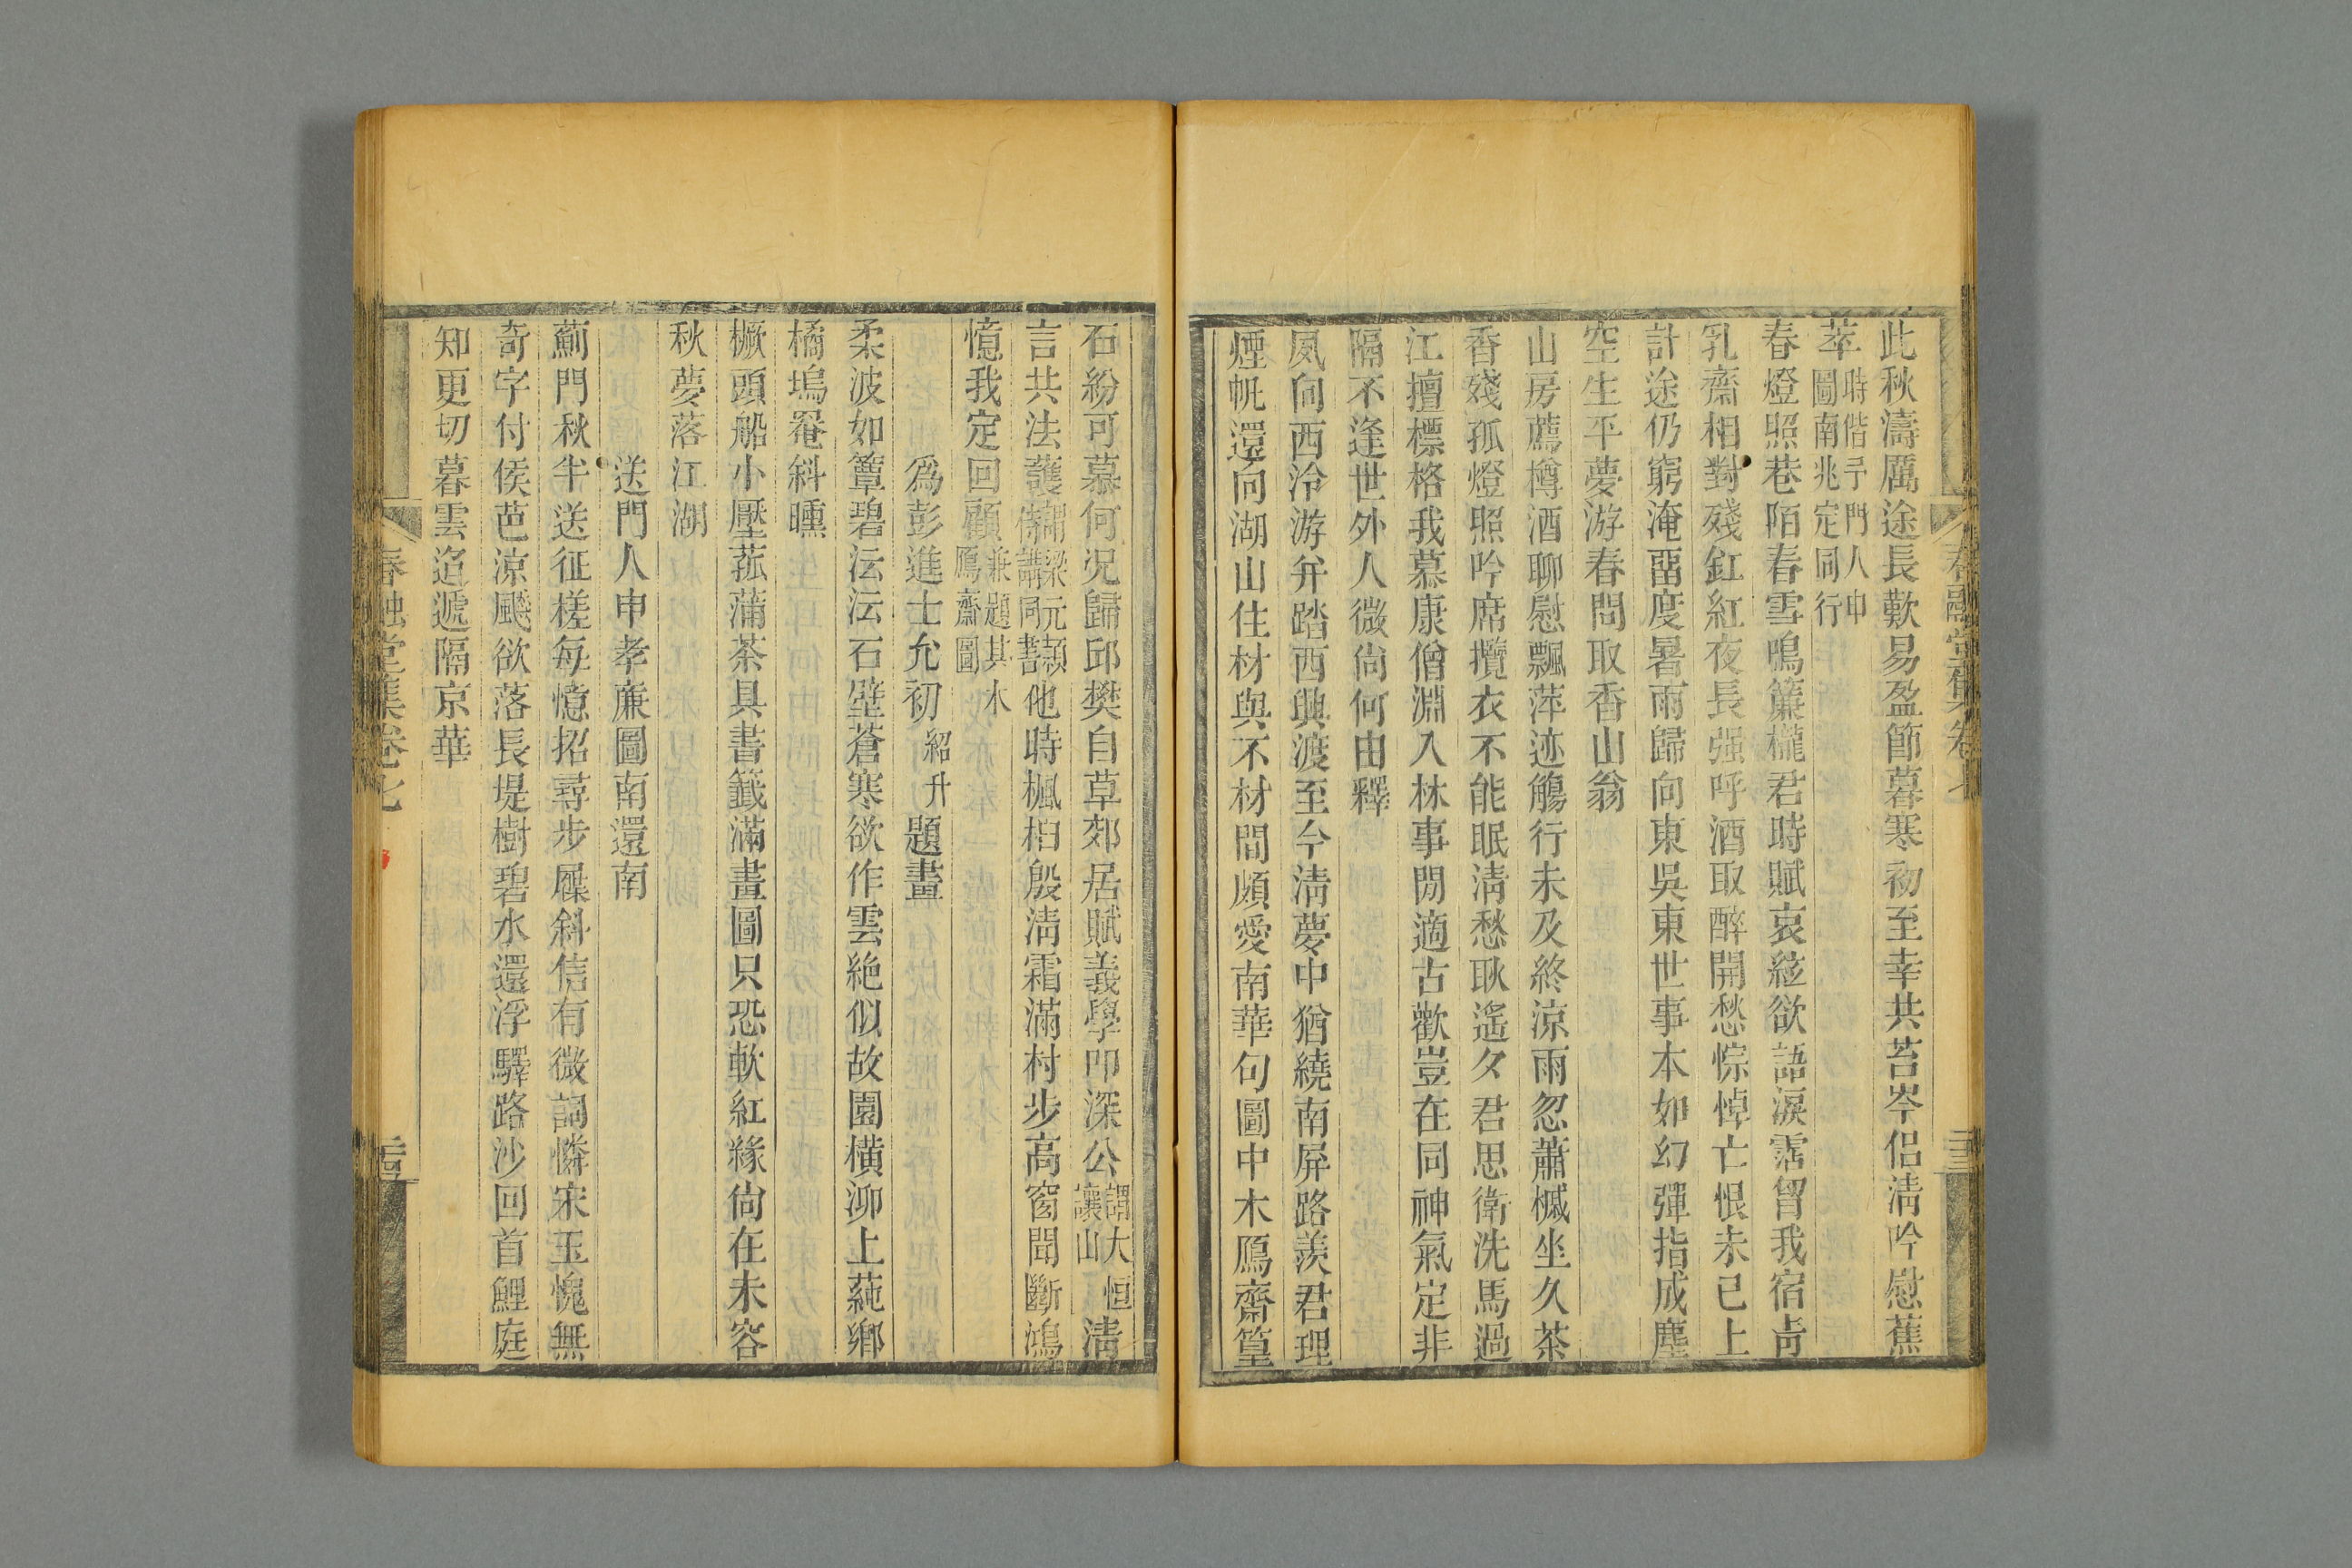 此秋濤厲途長歎易盈節暮寒初至幸共苔岑侶淸吟慰蕉
萃時偕予門人申圖南兆定同行
春燈照巷陌春雪鳴簾櫳君時賦哀絃欲語淚霑留我宿歬
乳齋相對殘釭紅夜長强呼酒取醉開愁悰悼亡恨未已上
計途仍窮淹畱度暑雨歸向東吳東世事本如幻彈指成塵
空生平夢游春問取香山翁
山房薦樽酒聊慰飄萍迹觴行未及終涼雨忽蕭槭坐久茶
香殘孤燈照吟席攬衣不能眠淸愁耿遙夕君思衛洗馬過
江擅標格我慕康僧淵入林事閒適古歡豈在同神氣定非
隔不逢世外人微尙何由釋
夙向西泠游弁踏西興渡至今淸夢中猶繞南屏路羨君理
煙帆還向湖山住材與不材間頗愛南華句圖中木鴈齋篁
春融堂集卷七
石紛可慕何況歸邱樊自草郊居賦義學叩深公謂大恒讓山淸
言共法護謂梁元穎同書他時楓柏殷淸霜滿村步高窗聞斷鴻
憶我定回顧兼題其木鴈齋圖
爲彭進士允初紹升題畫
柔波如簟碧沄沄石壁蒼寒欲作雲絶似故園橫泖上蒓鄕
橘塢罨斜曛
橛頭船小壓菰蒲茶具書籤滿畫圖只恐軟紅緣尙在未容
秋夢落江湖
送門人申孝廉圖南還南
薊門秋半送征槎每憶招尋步屧斜信有微詞憐宋玉愧無
奇字付侯芭涼颸欲落長堤樹碧水還浮驛路沙回首鯉庭
知更切暮雲迢遞隔京華
春融堂集卷七